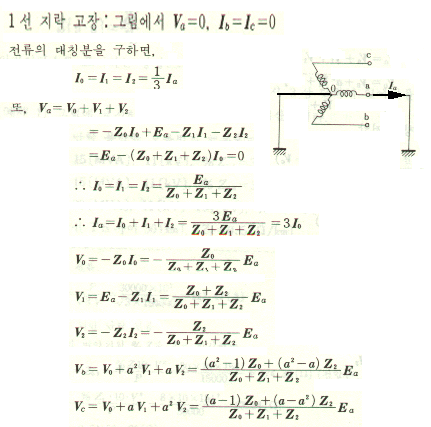 1선 지락 고장 : 그림에서 Va=0, Ib=Ic=0
전류의 대칭분을 구하면,
I₀=I₁=I₂=1/3 Ia
또, Va=V₀+V₁+V₂
=-Z₀I₀+Ea-Z₁I₁-Z₂I₂
=Ea-(Z₀+Z₁+Z₂)I₀=0
∴ I₀=I₁=I₂=Ea/(Z₀+Z₁+Z₂)
∴ Ia=I₀+I₁+I₂=3Ea/(Z₀+Z₁+Z₂)=3I₀
V₀=-Z₀I₀=-Z₀/(Z₀+Z₁+Z₂) Ea
V₁=Ea-Z₁I₁=(Z₀+Z₂)/(Z₀+Z₁+Z₂) Ea
V₂=-Z₂I₂=-Z₂/(Z₀+Z₁+Z₂) Ea
Vb=V₀+a²V₁+aV₂=((a²-1)Z₀+(a²-a)Z₂)/(Z₀+Z₁+Z₂) Ea
Vc=V₀+aV₁+a²V₂=((a-1)Z₀+(a-a²)Z₂)/(Z₀+Z₁+Z₂) Ea
c
0
a
Ia
b